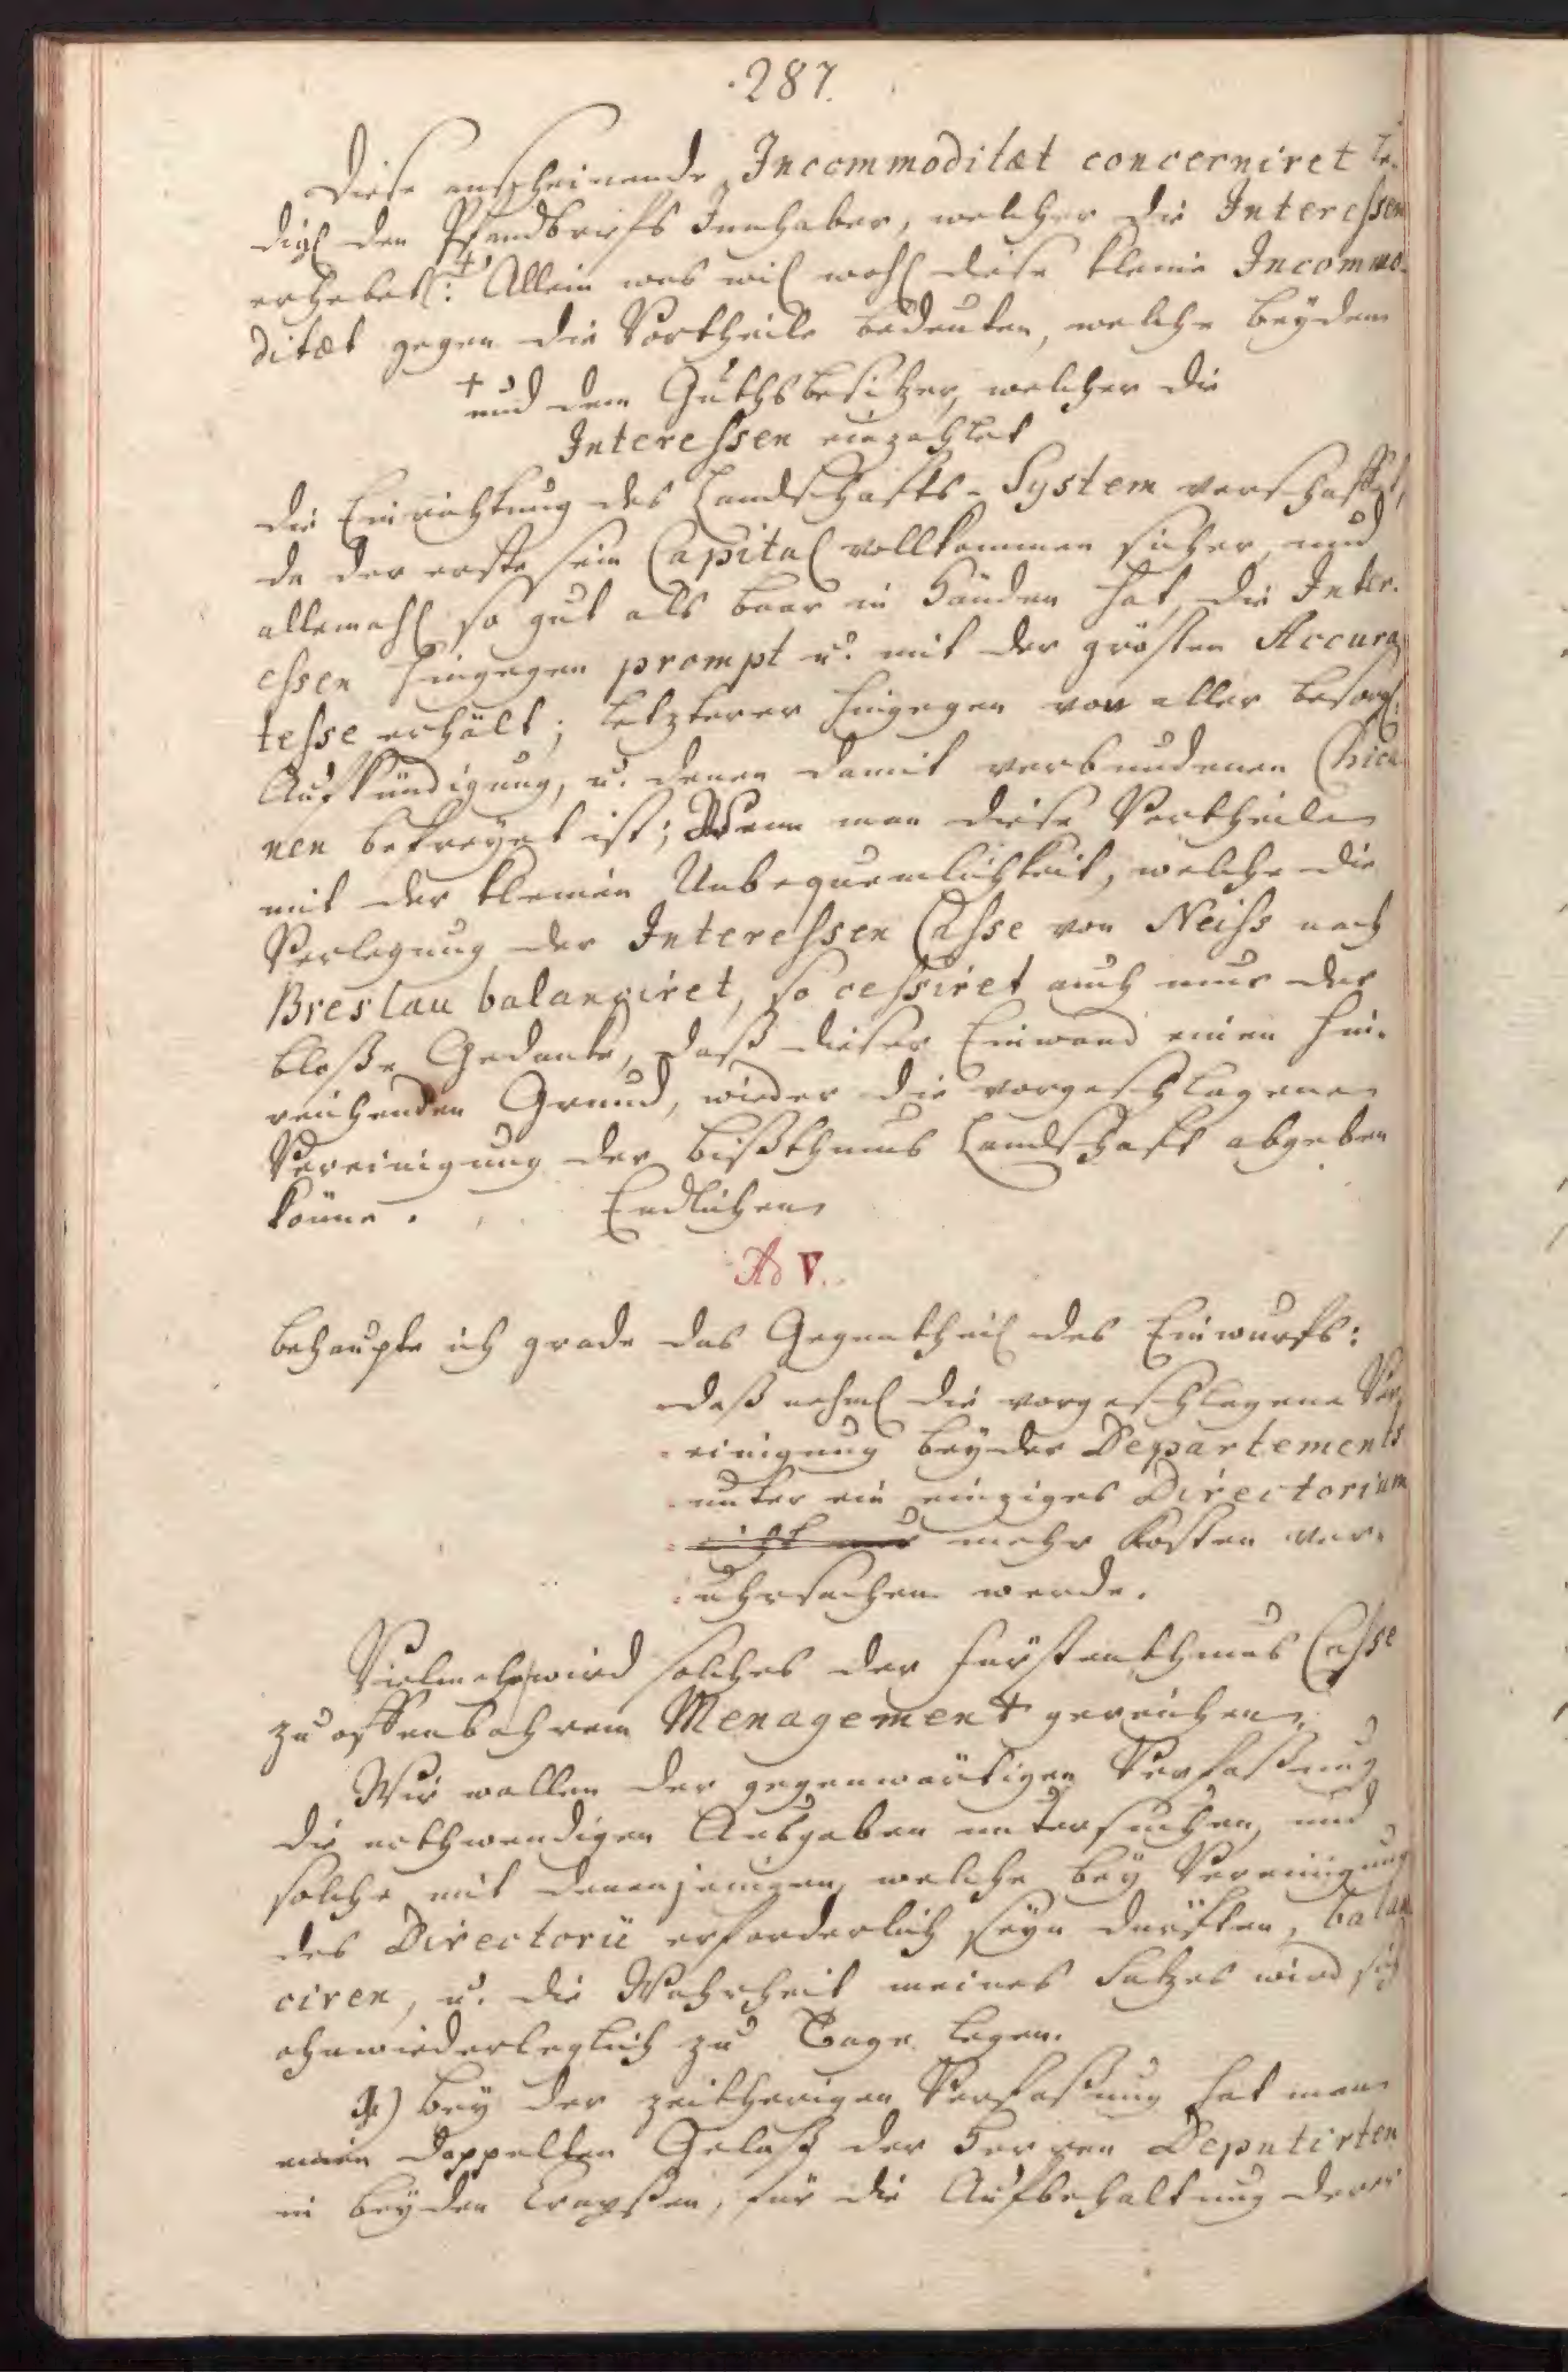 287.
Diese anscheinende Incommoditæt concerniret le-
digl den Pfandbriefs Innhaber, welcher die Interessen
erhebet :+ Allein was wil wohl diese kleine Incommo-
ditæt gegen die Vortheile bedeuten, welche beydem
+ und dem Guthsbesitzer, welcher die
Interessen einzahlet
die Einrichtung des Landschafts-System verschaffet,
da der erste sein Capital vollkommen sicher, und
allemahl so gut als baar in Händen hat, die Inter-
essen hingegen prompt u. mit der grösten Accura-
tesse erhält; letzterer hingegen von aller besorgl:
Aufkündigung, u. denen damit verbundenen Chica-
nen befreyet ist; Wenn man diese Vortheile
mit der kleinen Unbequemlichkeit, welche die
Verlegung der Interessen Casse von Neiss nach
Breslau balanciret, so cessiret auch nur der
bloße Gedanke, daß dieser Einwand einen hin-
reichenden Grund, wieder die vorgeschlagene
Vereinigung der Bißthums Landschaft abgeben
könne. Endlichen
Ad V.
behaupte ich grade das Gegentheil des Einwurfs:
daß nehml die vorgeschlagene Ver-
einigung beyder Departements
unter ein einziges Directorium
nicht nur mehr Kosten ver-
uhrsachen werde.
Vielmehr wird solches der Fürstenthums Casse
zu offenbahrem Menagement gereichen.
Wir wollen der gegenwärtigen Verfaßung
die nothwendigen Ausgaben untersuchen, und
solche mit denenjenigen, welche bey Vereinigung
des Directorii erforderlich seyn dürften, balan-
ciren, u. die Wahrheit meines Satzes wird sich
ohnwiederleglich zu Tage legen.
Bey der zeitherigen Verfaßung hat man
einen doppelten Gelaß der Herren Deputirten
in beyden Creyßen, für die Aufbehaltung derer